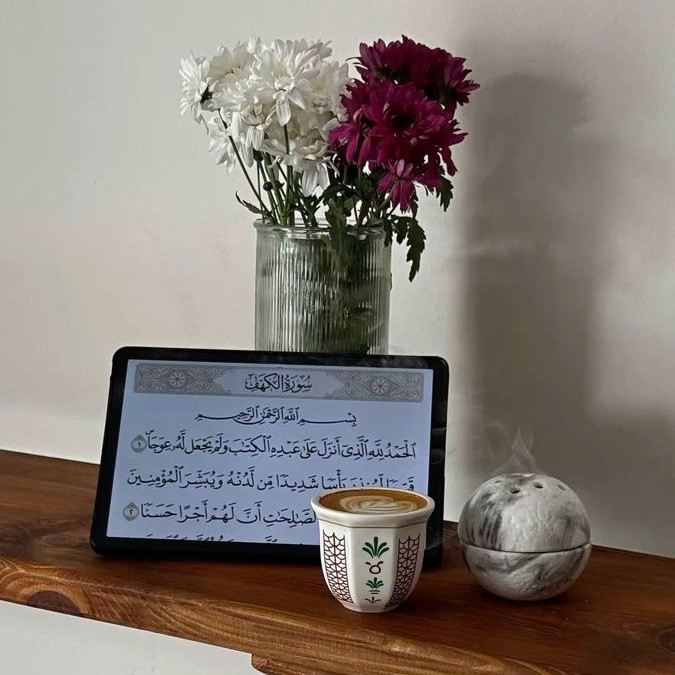 سُورَةُ الكَهۡفِ
بِسۡمِ ٱللَّهِ ٱلرَّحۡمَٰنِ ٱلرَّحِيمِ
ٱلۡحَمۡدُ لِلَّهِ ٱلَّذِيٓ أَنزَلَ عَلَىٰ عَبۡدِهِ ٱلۡكِتَٰبَ وَلَمۡ يَجۡعَل لَّهُۥ عِوَجَاۜ ١
بَأۡسٗا شَدِيدٗا مِّن لَّدُنۡهُ وَيُبَشِّرَ ٱلۡمُؤۡمِنِينَ
ٱلصَّٰلِحَٰتِ أَنَّ لَهُمۡ أَجۡرًا حَسَنٗا ٢